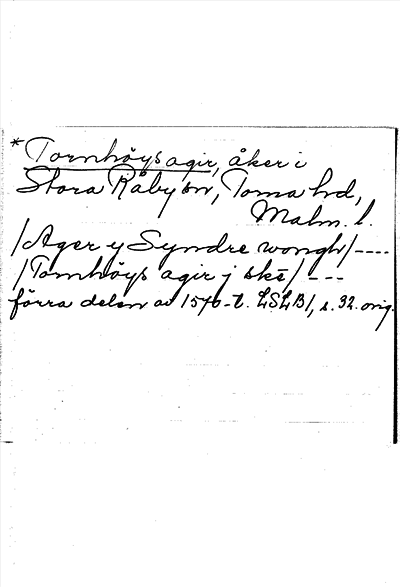 * Tornhöys agir, åker i
Stora Råby sn, Torna hd,
Malm. l.
/Ager y Syndre wongh/ ----
/Tornhöys agir j skē/ ---
förra delen av 1570-t. LSLB1, s. 32. orig.